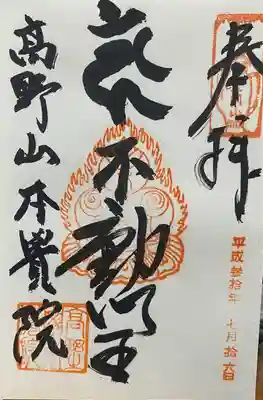 奉拝
平成参拾年 七月拾六日
不動明王
高野山本覺院